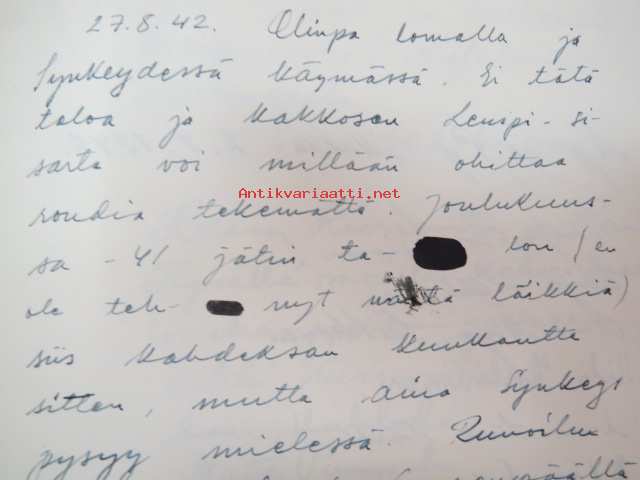 27.8.42. Olinpa lomalla ja
Synkeydessä käymässä. Ei tätä
taloa ja kakkosen Lenspi-si-
sarta voi millään ohittaa
Antikvariaatti.net
roudia tekemättä. Joulukuus-
sa -41 jätin ta- lon (en
ole teh- nyt näitä läikkiä)
siis kahdeksan kuukautta
sitten, mutta aina Synkeys
pysyy mielessä. Runoilun